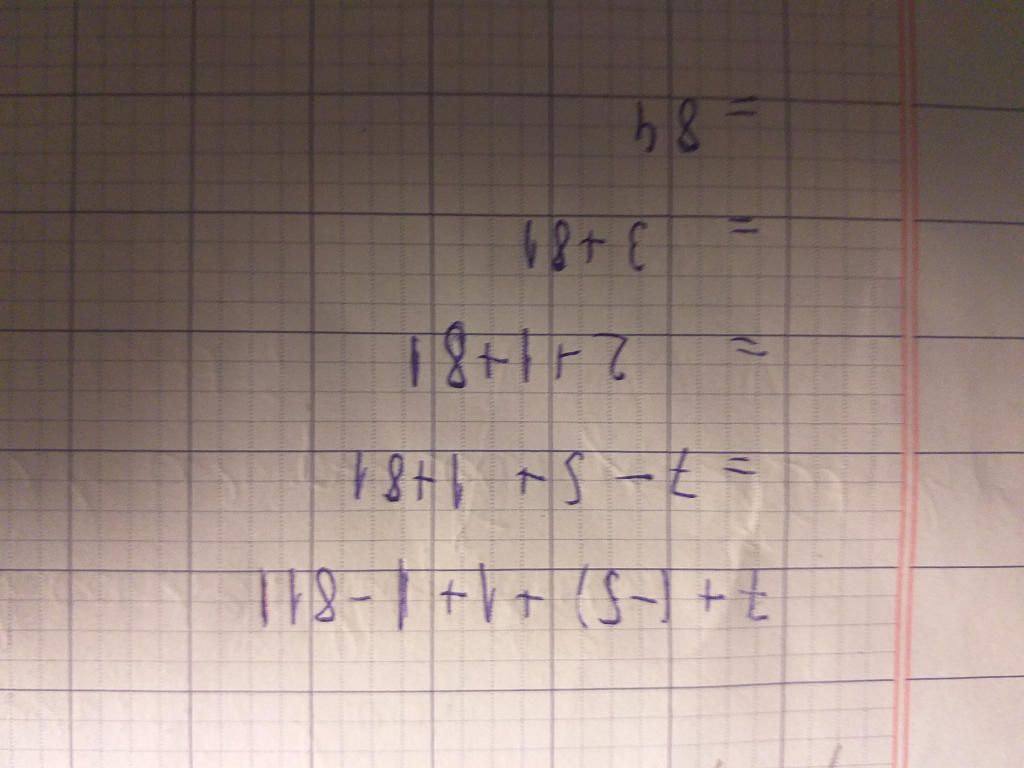 7 + (-5) + 1 + |-81|
= 7 - 5 + 1 + 81
= 2 + 1 + 81
= 3 + 81
= 84